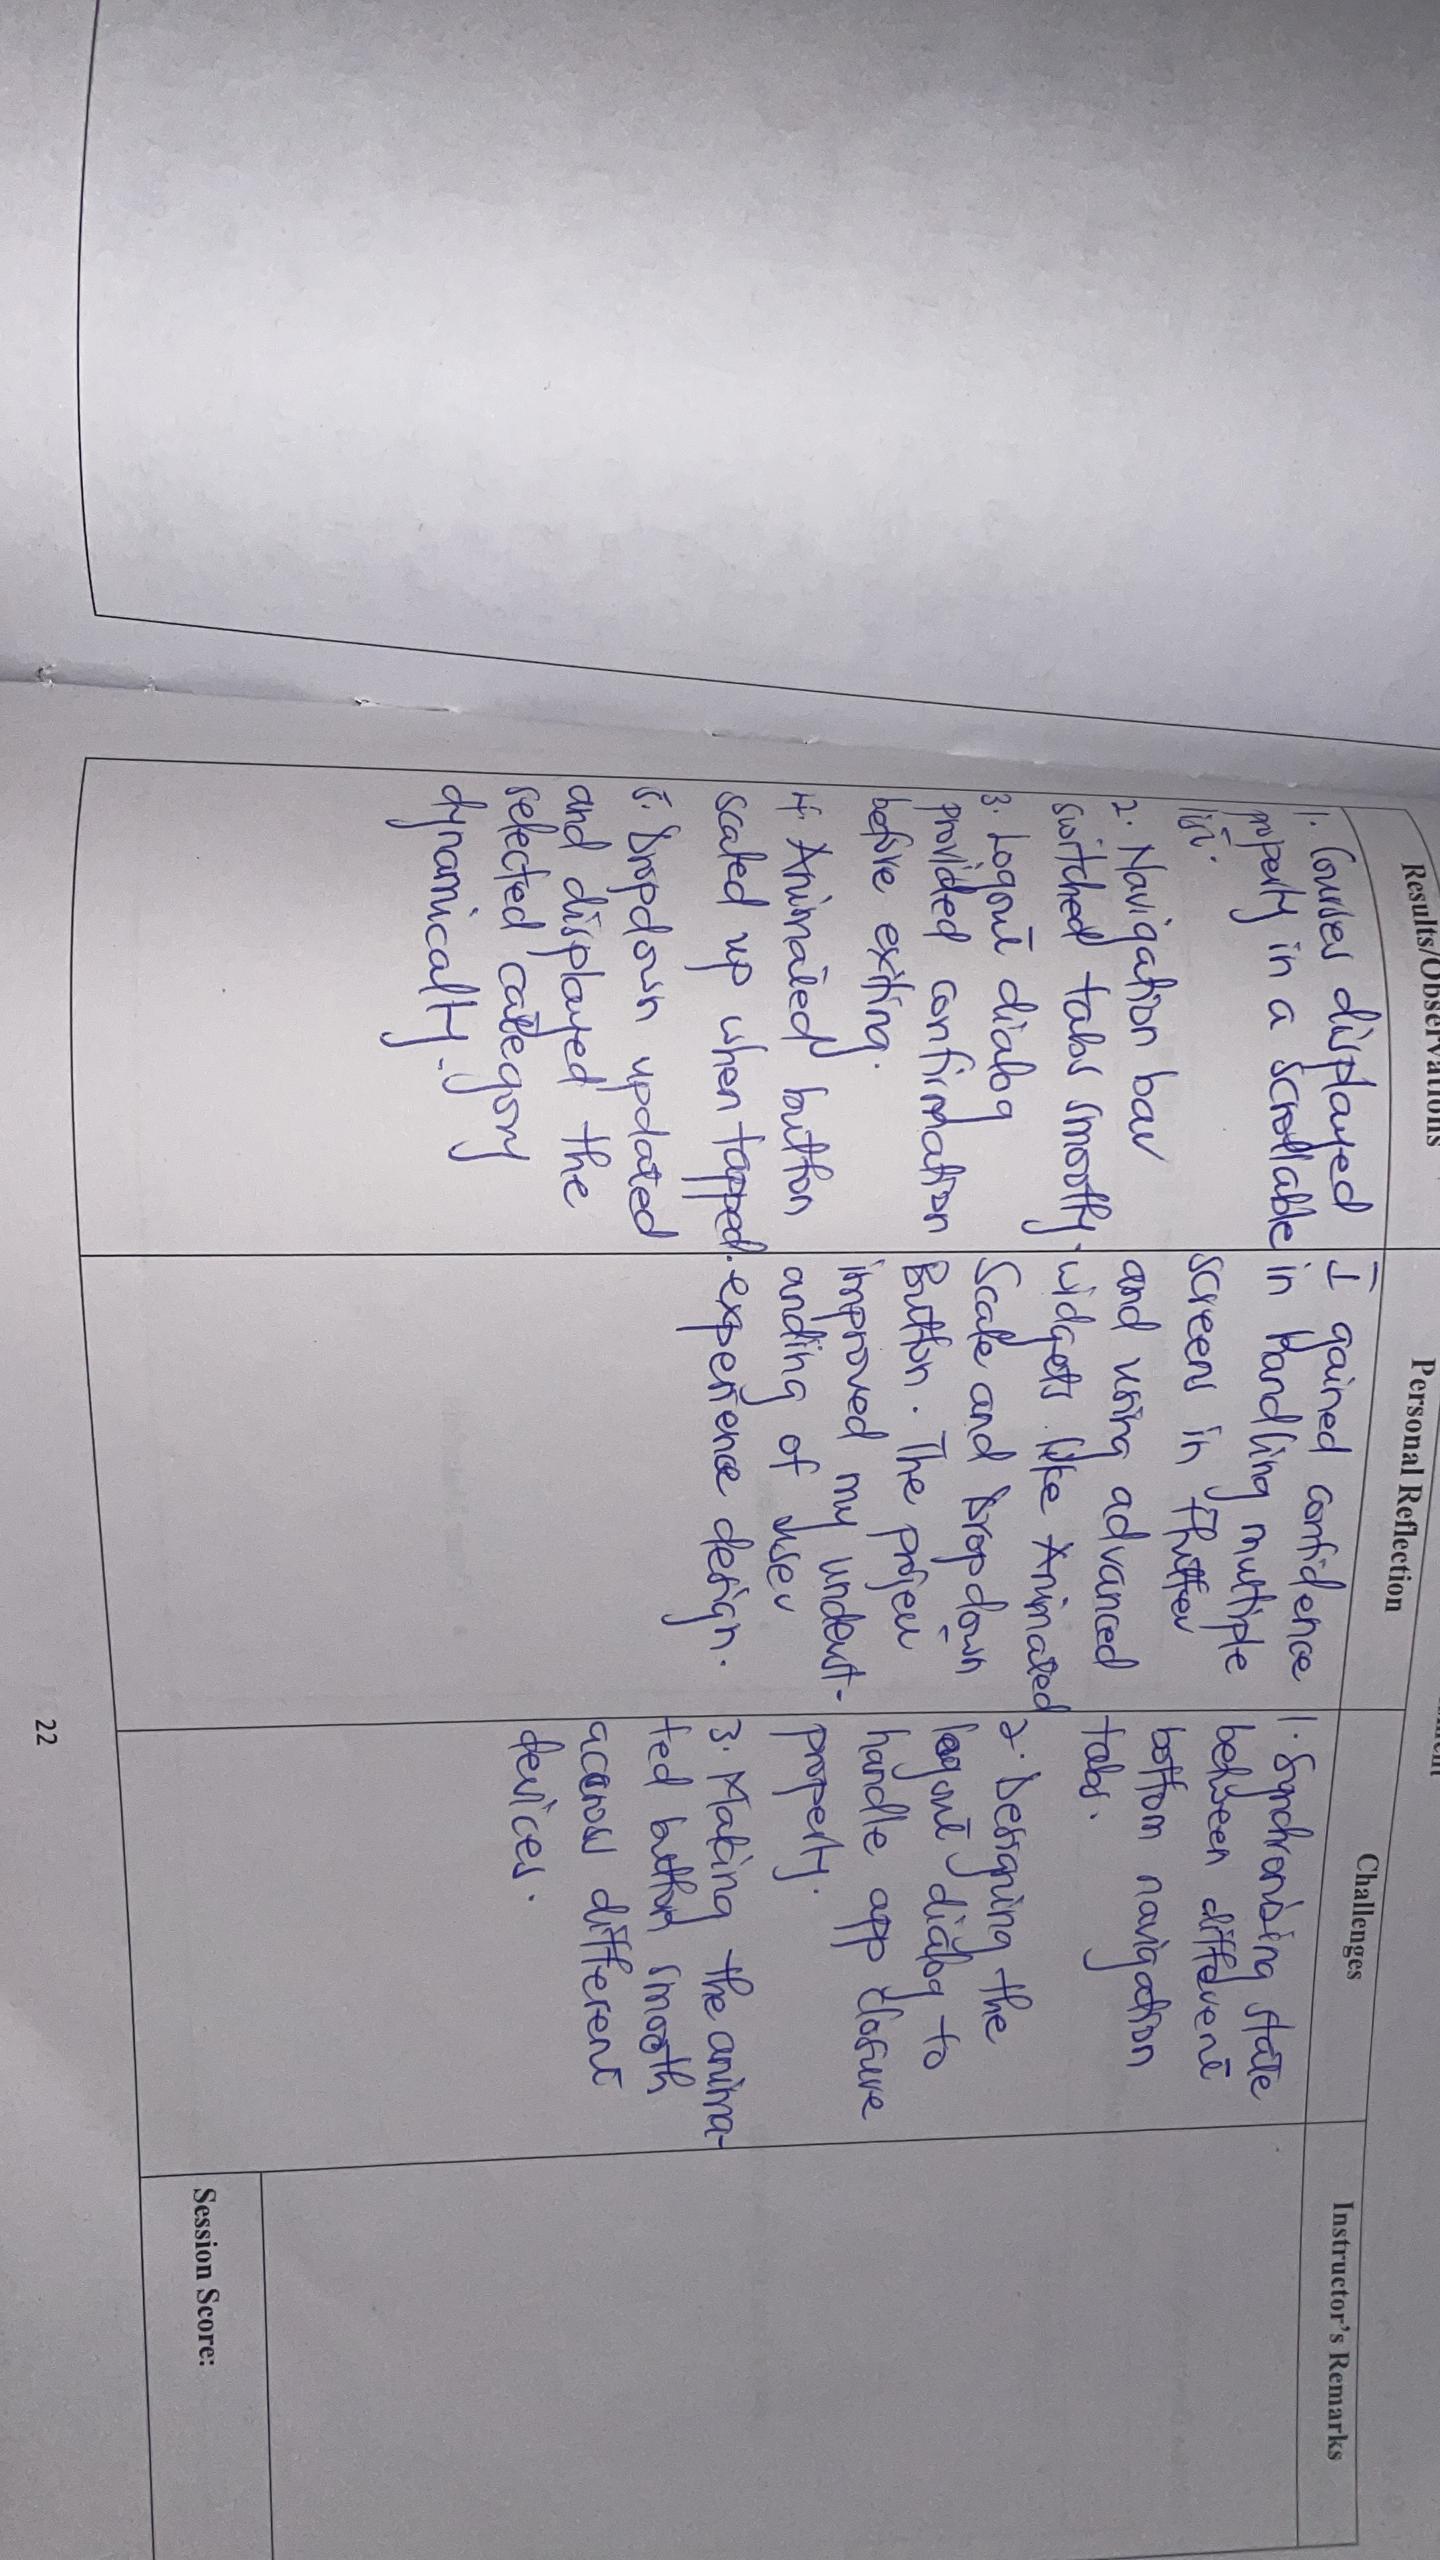 Results/Observations
1. Courses displayed
properly in a scrollable
list.
2. Navigation bar
switched tabs smoothly.
3. Logout dialog
provided confirmation
before exiting.
4. Animated button
scaled up when tapped.
5. Dropdown updated
and displayed the
selected category
dynamically.
Personal Reflection
I gained confidence
in handling multiple
screens in Flutter
and using advanced
widgets like Animated
Scale and Dropdown
Button. The project
improved my underst-
anding of user
experience design.
Challenges
1. Synchronising state
between different
bottom navigation
tabs.
2. Designing the
logout dialog to
handle app closure
properly.
3. Making the anima-
ted button smooth
accross different
devices.
Instructor's Remarks
Session Score:
22